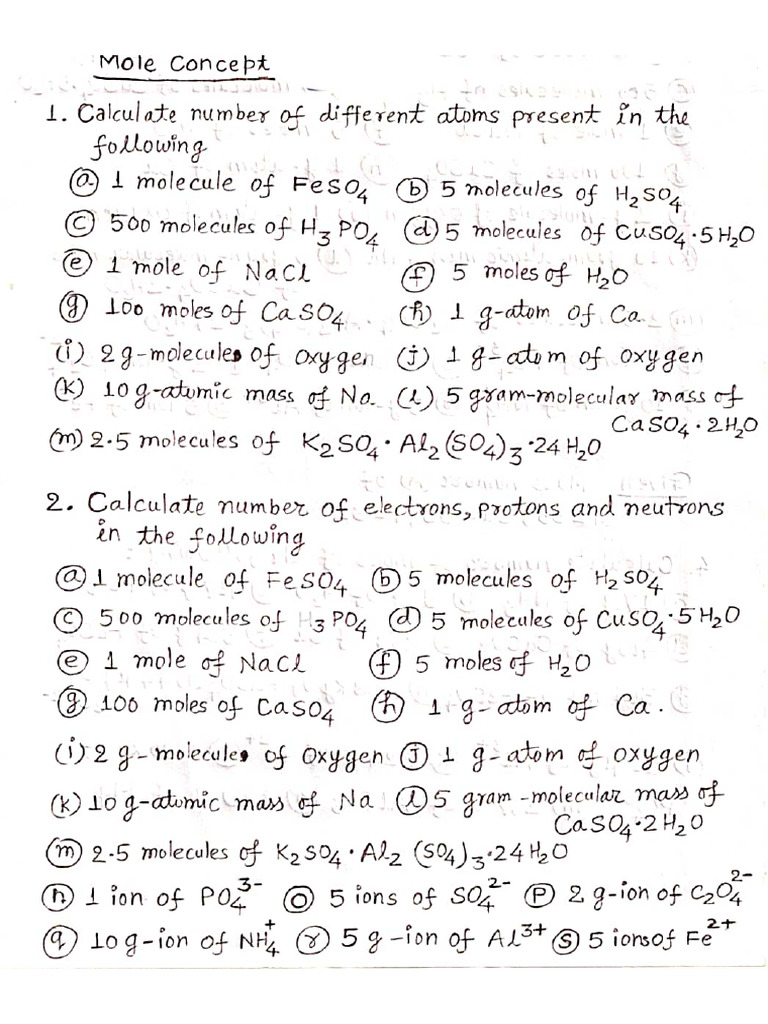 Mole Concept
1. Calculate number of different atoms present in the
following
(a) 1 molecule of FeSO₄ (b) 5 molecules of H₂SO₄
(c) 500 molecules of H₃PO₄ (d) 5 molecules of CuSO₄·5H₂O
(e) 1 mole of NaCl (f) 5 moles of H₂O
(g) 100 moles of CaSO₄ (h) 1 g-atom of Ca.
(i) 2 g-molecules of oxygen (j) 1 g-atom of oxygen
(k) 10 g-atomic mass of Na. (l) 5 gram-molecular mass of
CaSO₄·2H₂O
(m) 2.5 molecules of K₂SO₄·Al₂(SO₄)₃·24H₂O
2. Calculate number of electrons, protons and neutrons
in the following
(a) 1 molecule of FeSO₄ (b) 5 molecules of H₂SO₄
(c) 500 molecules of H₃PO₄ (d) 5 molecules of CuSO₄·5H₂O
(e) 1 mole of NaCl (f) 5 moles of H₂O
(g) 100 moles of CaSO₄ (h) 1 g-atom of Ca.
(i) 2 g-molecules of oxygen (J) 1 g-atom of oxygen
(k) 10 g-atomic mass of Na (l) 5 gram-molecular mass of
CaSO₄·2H₂O
(m) 2.5 molecules of K₂SO₄·Al₂(SO₄)₃·24H₂O
(n) 1 ion of PO₄³⁻ (o) 5 ions of SO₄²⁻ (P) 2 g-ion of C₂O₄²⁻
(q) 10 g-ion of NH₄⁺ (r) 5 g-ion of Al³⁺ (S) 5 ions of Fe²⁺